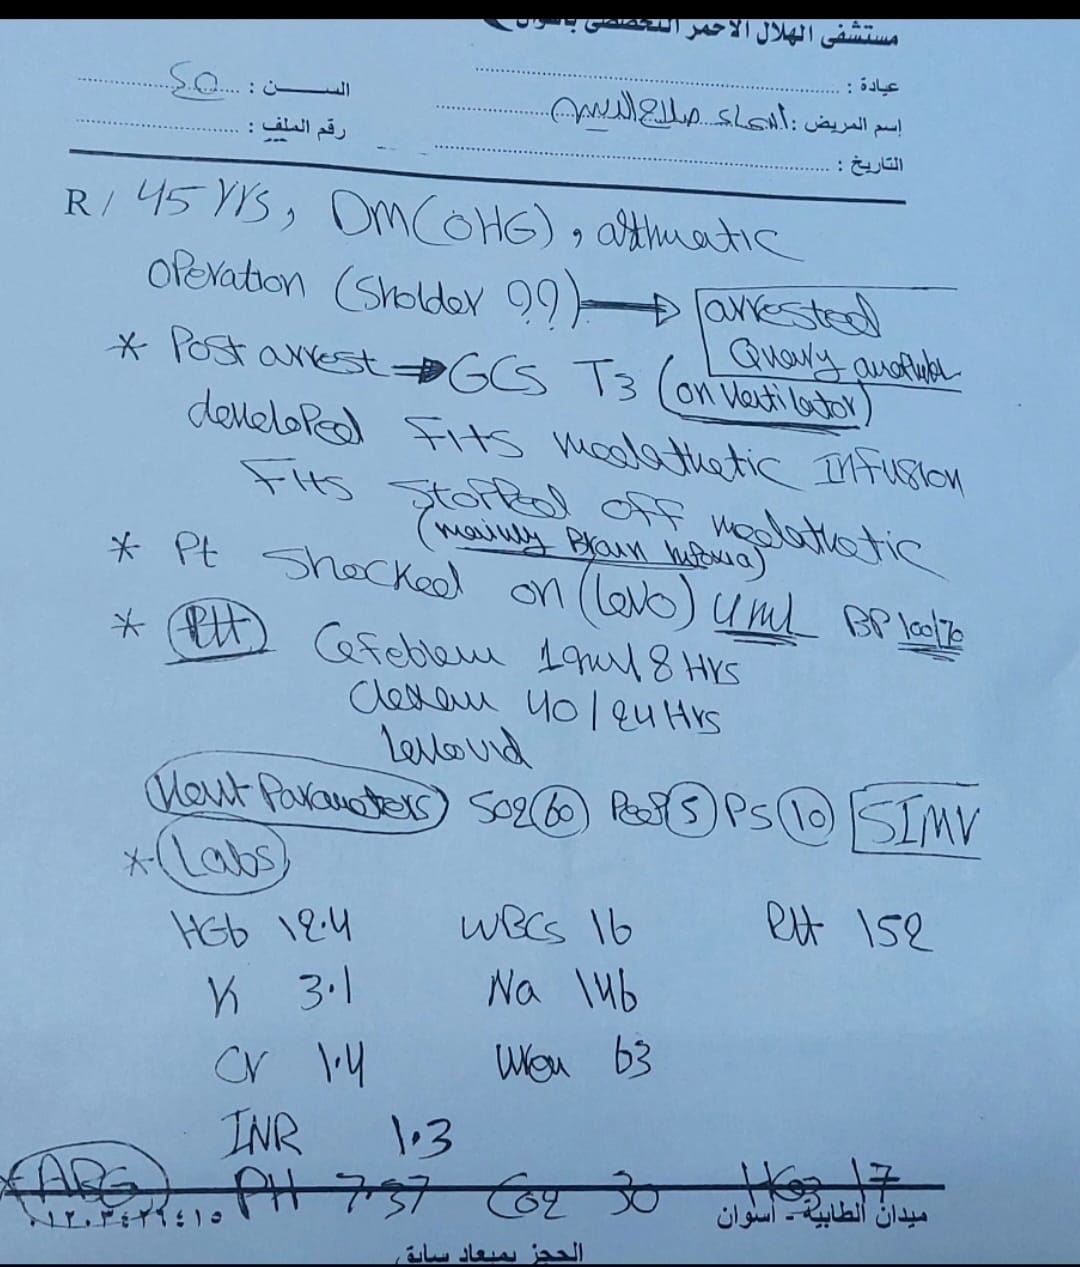 مستشفى الهلال الاحمر التخصصى بأسوان
عيادة :
السن : 50
إسم المريض : أسماء صلاح الدين
رقم الملف :
التاريخ :
R/ 45 yrs, DM (OHG), asthmatic
operation (sholder ??) → arrested
Query
* Post arrest → GCS T3 (on ventilator)
developed Fits infusion
Fits stopped off
(mainly Brain hypoxia)
* Pt shocked on (levo) 4 ml BP 100/70
* 1gm/8 Hrs
clexan 40/24 Hrs
Vent Parameters So2 60 Peep 5 PS 10 SIMV
* Labs
HGb 12.4 WBCs 16 Plt 152
K 3.1 Na 146
Cr 1.4 Urea 63
INR 1.3
* ABG PH 7.37 Co2 30 Hco3 17
ميدان الطابية - أسوان ٠١٢٠٣٤٢٦٤١٥
الحجز بميعاد سابق